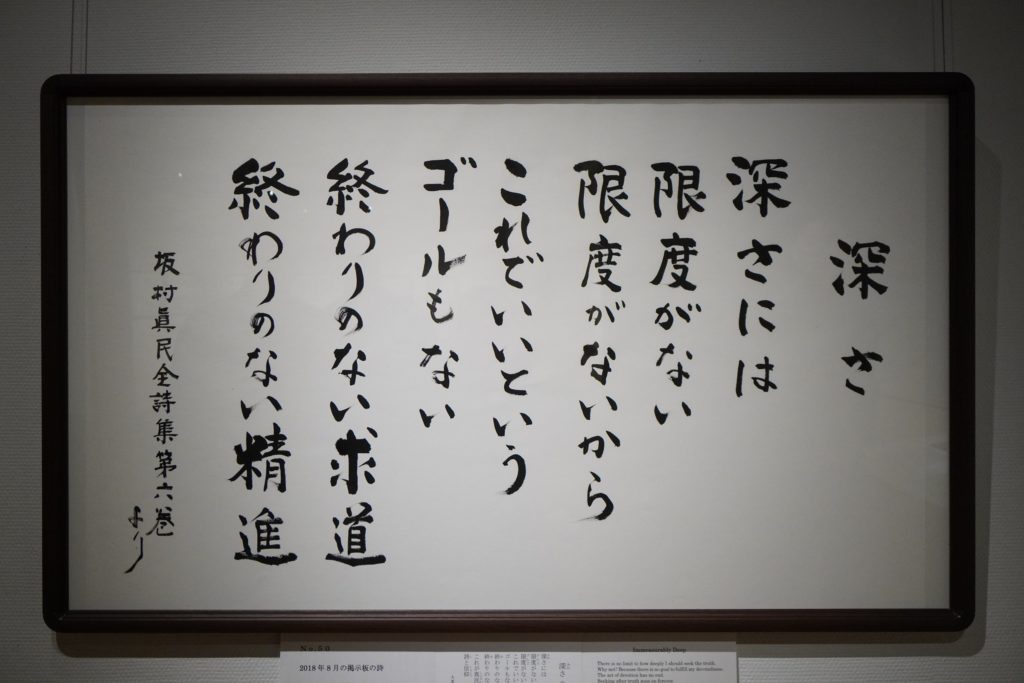 深さ
深さには
限度がない
限度がないから
これでいいという
ゴールもない
終わりのない求道
終わりのない精進
坂村眞民全詩集第六巻
より
No.50
2018年8月の掲示板の詩
深さ
深さには
限度がない
Immeasurably Deep
There is no limit to how deeply I should seek the truth.
Why not? Because there is no goal to fulfill my devoutness.
The act of devotion has no end.